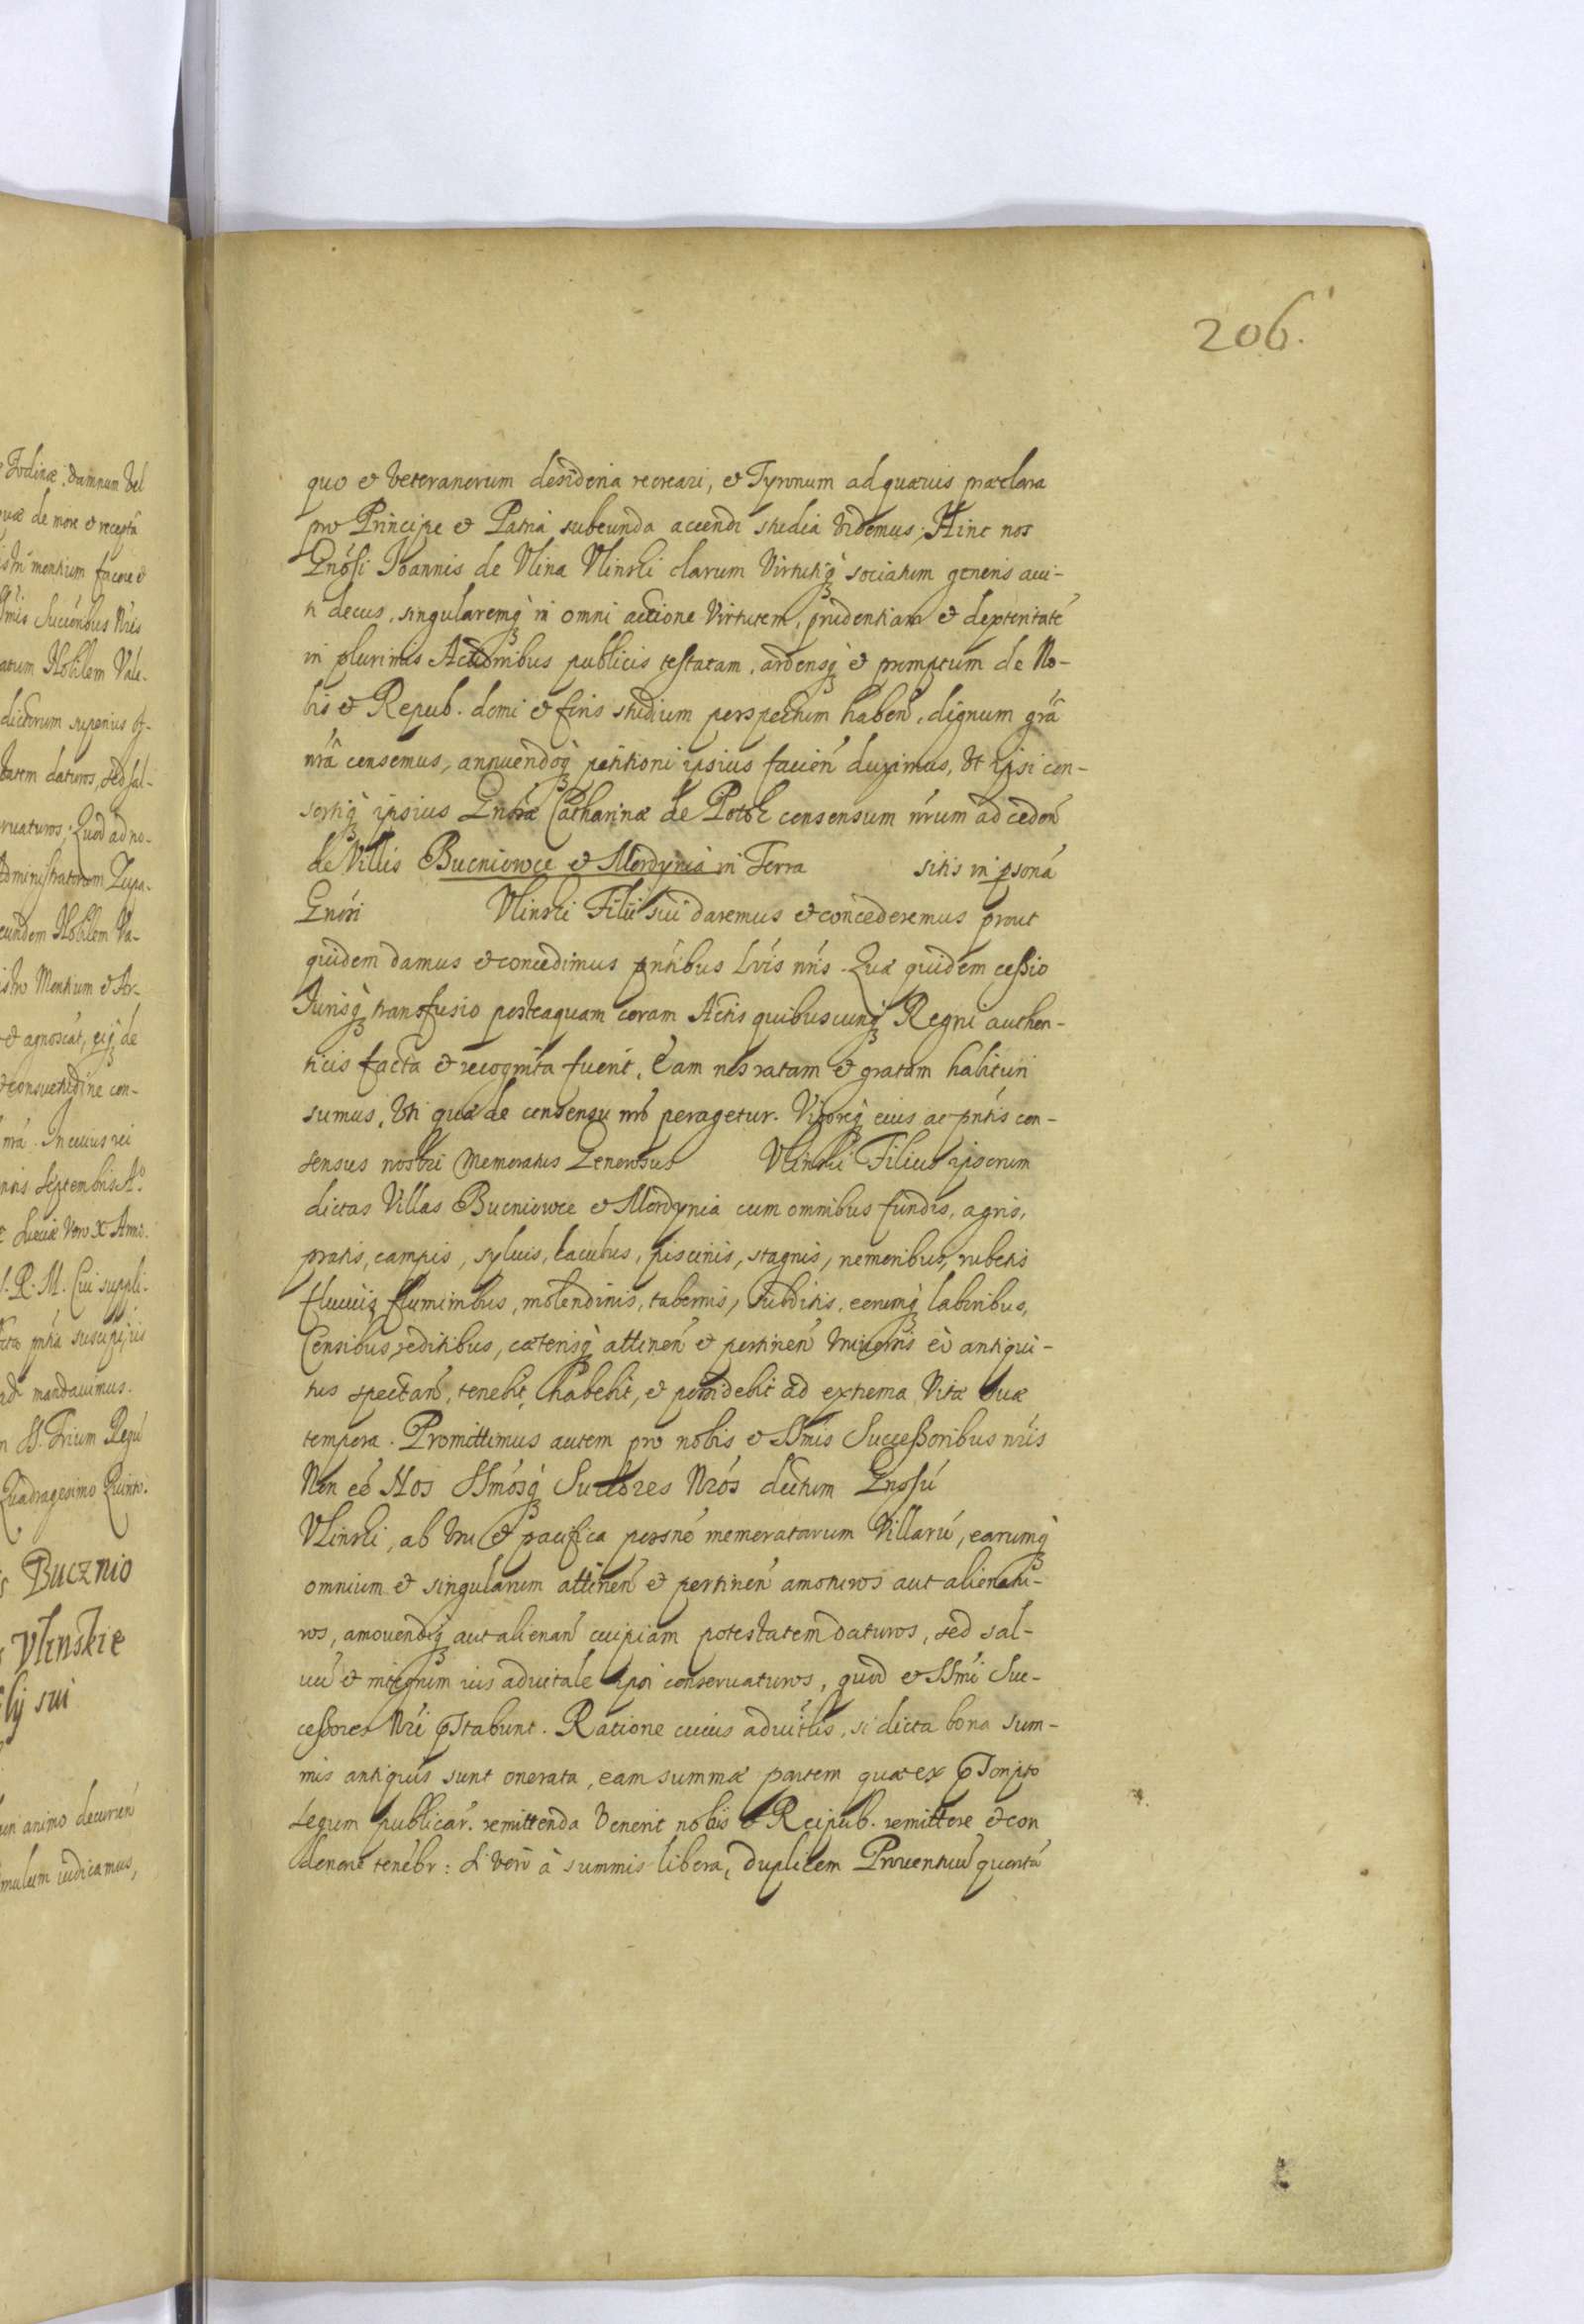 Iodinæ, damnum vel
quæ de more et recepta
montium facere et
Succribus Nris
atum Nobilem Vale-
dictorum superius
tatem daturos, sed sal-
ruaturos, Quod ad no-
Administratorum Zupa-
eundem Nobilem Va-
Montium et
et agnoscat, eiq; de
et consuetudine con-
nrá. In cuius rei
nsis Septembris Aº.
Sueciæ Vero X Anno.
S. R. M. Cui suppli-
suscipi
ad mandauimus.
SS. Trium Regū
Quadragesimo Quinto.
Bucznio
Vlinskie
lij sui
animo decurren̄
mulum iudicamus,
206.
quo et Veteranorum desideria recreari, et Tyronum ad quæuis præclara
pro Principe et Patria subeunda accendi studia videmus; Hinc nos
Gnōsi Ioannis de Vlina Vlinski clarum Virtutiq; sociatum generis aui-
ti decus, singularemq; in omni actione Virtutem, prudentiam et dexteritatē
in plurimis Actionibus publicis testatam, ardensq; et promptum de No-
bis et Repub. domi et foris studium perspectum haben̄, dignum grā
nrā censemus, annuendoq; petitioni ipsius facien̄ duximus, Vt ipsi con-
sortiq; ipsius Gnōsæ Catharinæ de Potok consensum nrum ad cedēn
de Villis Bucniowce et Mordynia in Terra sitis in psoná
Gnōsi Vlinski Filii sui daremus et concederemus prout
quidem damus et concedimus pntibus Lris nris. Quæ quidem cessio
Iurisq; transfusio posteaquam coram Actis quibuscunq; Regni authen-
ticis facta et recognita fuerit, Eam nos ratam et gratam habituri
sumus, Vti quæ de consensu nrō peragetur. Vigoreq; eius ac pntis con-
sensus nostri Memoratus Generosus Vlinski Filius ipsorum
dictas Villas Bucniowce et Mordynia cum omnibus fundis, agris,
pratis, campis, syluis, lacubus, piscinis, stagnis, nemoribus, rubetis
fluuiis fluminibus, molendinis, tabernis, Subditis, eorumq; laboribus,
Censibus, reditibus, cæterisq; attinen̄ et pertinen̄ Vniuersis eò antiqui-
tus spectan̄, tenebit, habebit, et possidebit ad extrema Vitæ suæ
tempora. Promittimus autem pro nobis et SSmis Successoribus nris
Non eē Nos SSmosq; Succores Nrōs dictum Gnosū
Vlinski, ab Vsu et pacifica possne memoratarum Villarū, earumq;
omnium et singularum attinen̄ et pertinen̄ amoturos aut alienatu-
ros, amouendiq; aut alienan̄ cuipiam potestatem daturos, sed sal-
uū et integrum ius aduitale ipsi conseruaturos, quod et SSmi Suc-
cessores Nri pstabunt. Ratione cuius aduitlis, si dicta bona sum-
mis antiquis sunt onerata, eam summæ partem quæ ex pscripto
Legum publicar. remittenda Venerit nobis et Reipub. remittere et con
donare tenebr: Si verò à summis libera, duplicem Prouentuū quartā